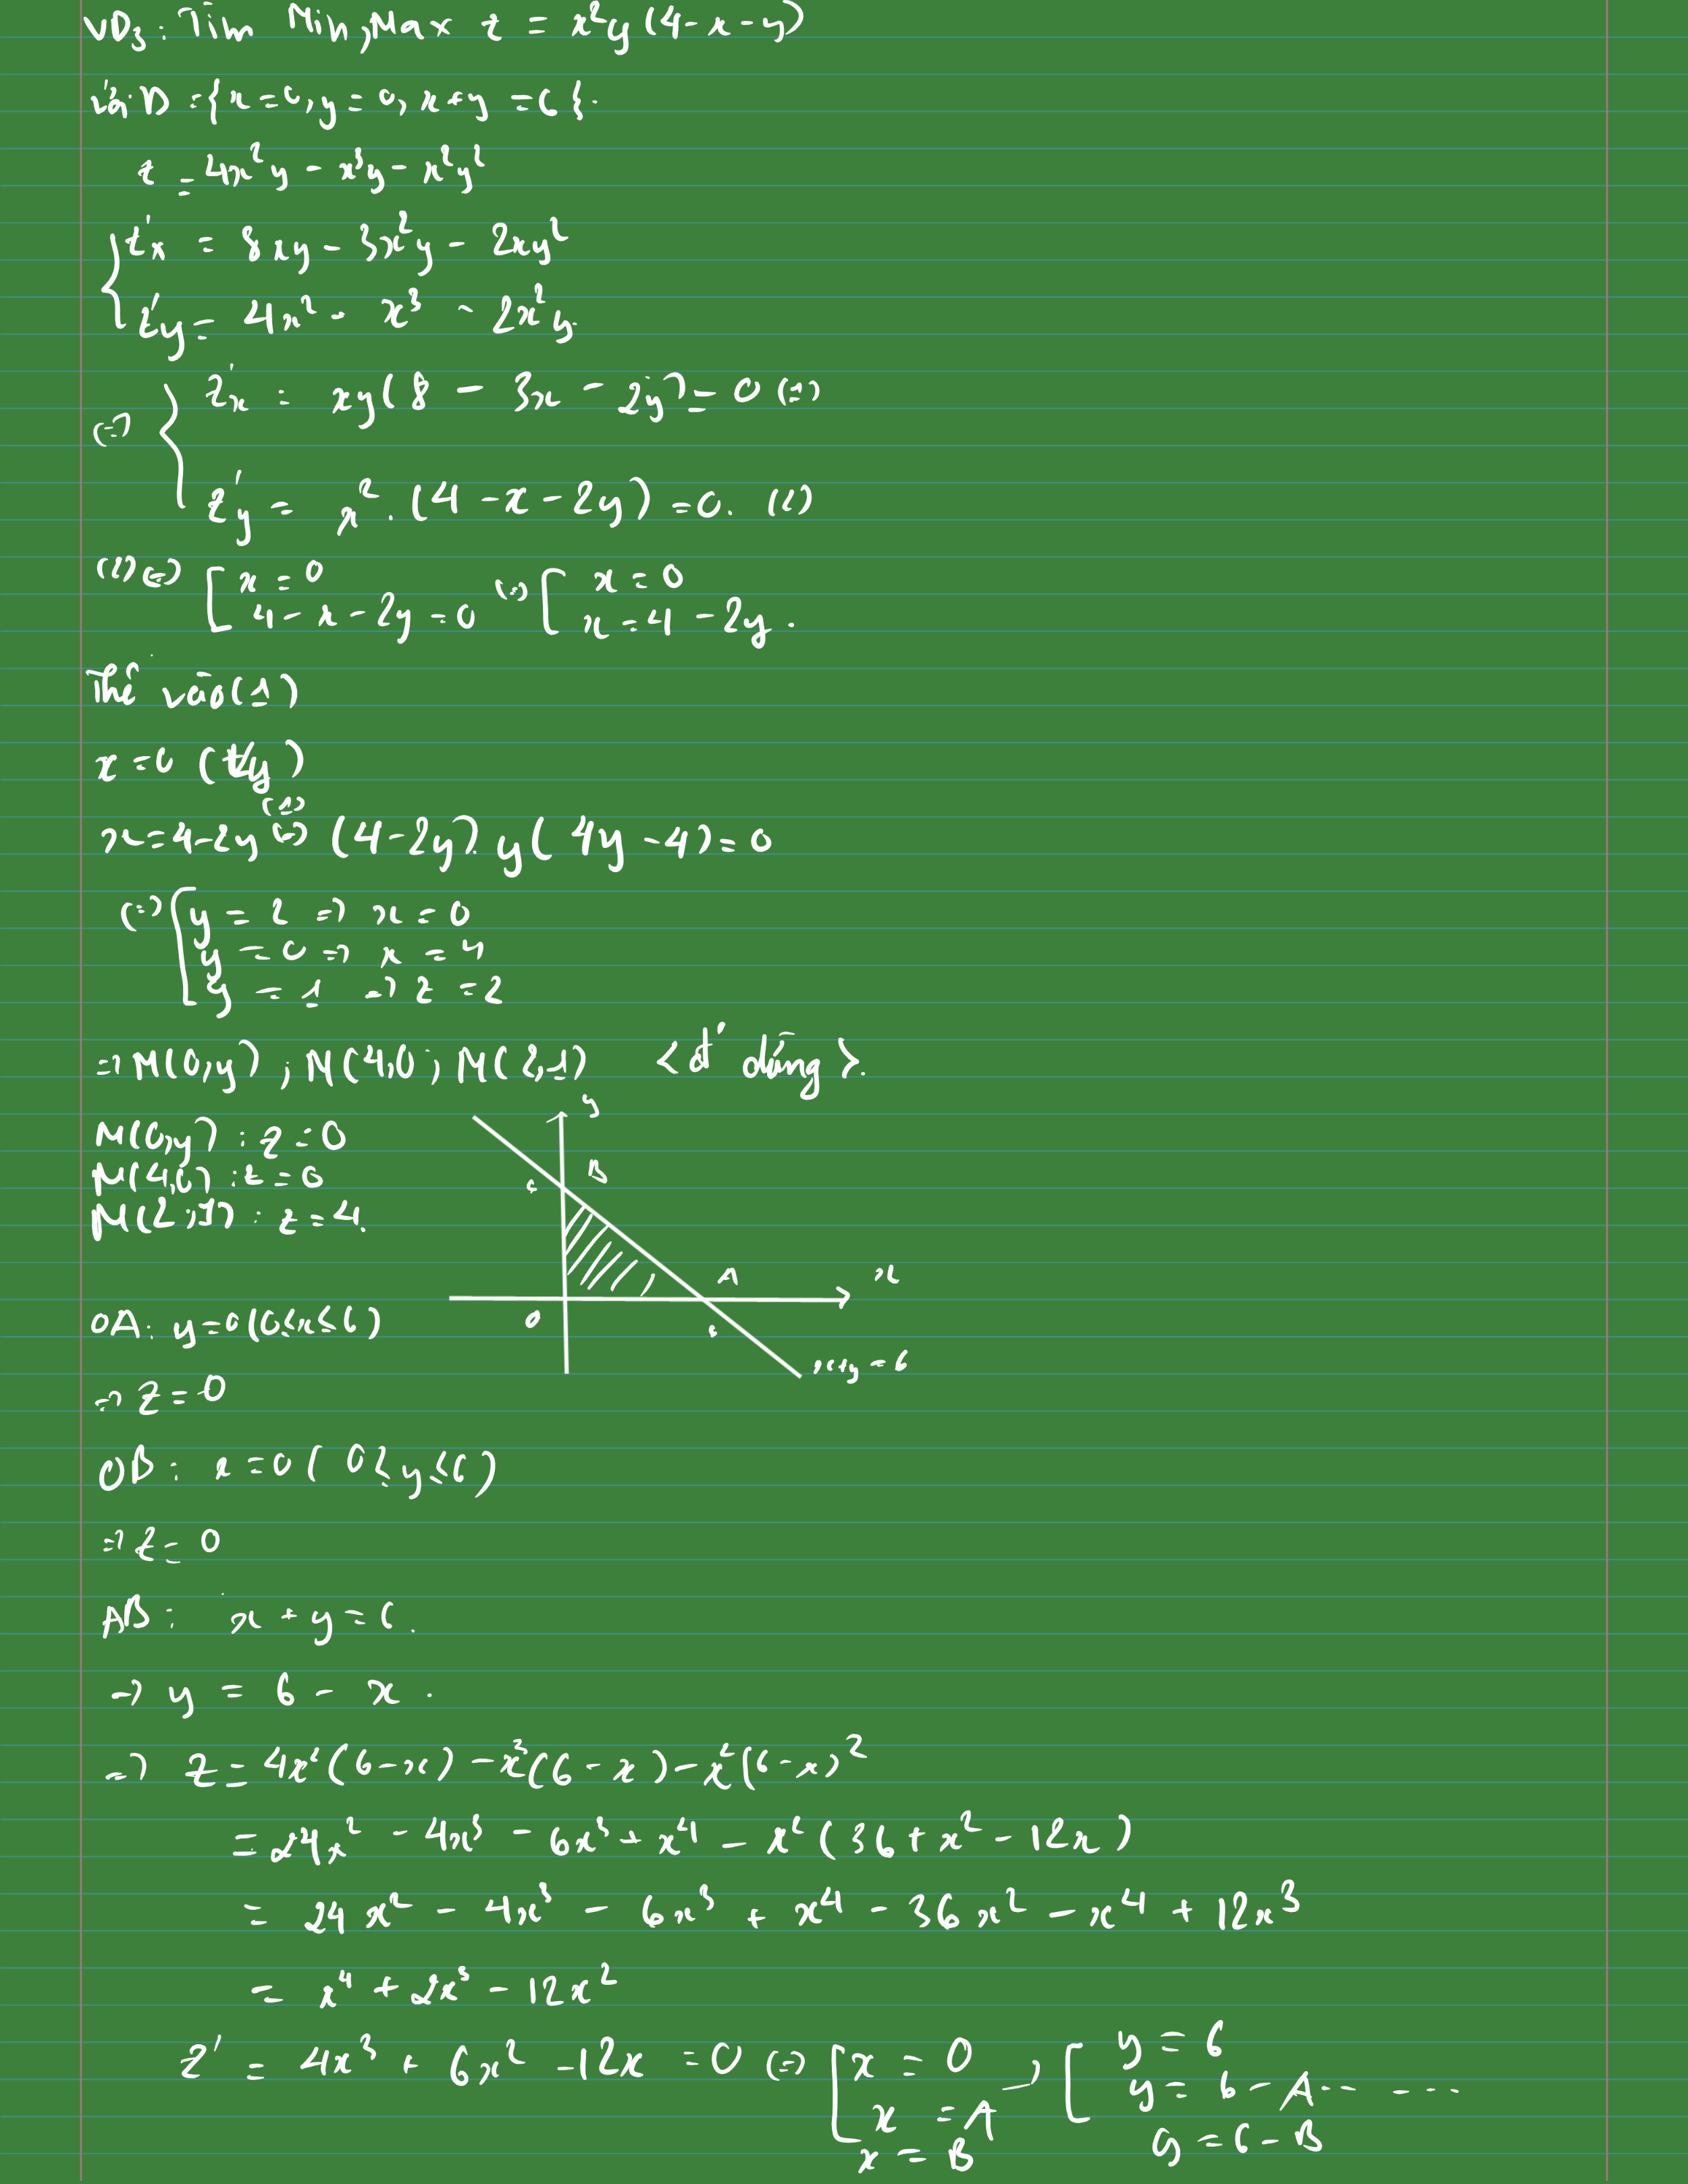 VD3: Tìm Min, Max z = x²y (4 - x - y)
trên D = { x = 0, y = 0, x + y = 6 }.
z = 4x²y - x³y - x²y²
{ z'x = 8xy - 3x²y - 2xy²
z'y = 4x² - x³ - 2x²y.
(=) { z'x = xy (8 - 3x - 2y) = 0 (1)
z'y = x². (4 - x - 2y) = 0. (2)
(2) (=) [ x = 0 (=) [ x = 0
4 - x - 2y = 0 x = 4 - 2y.
Thế vào (1)
x = 0 (∀y)
x = 4 - 2y (1) (=) (4 - 2y). y (4y - 4) = 0
(=) [ y = 2 => x = 0
y = 0 => x = 4
y = 1 -> z = 2
=> M(0,y) ; M(4,0 ; M(2,1) < đ' dừng >.
y
M(0,y) : z = 0
M(4,0) : z = 0
B
6
M(2;1) : z = 4.
A x
OA: y = 0 (0 ≤ x ≤ 6) O 6
x + y = 6
=> z = 0
OB: x = 0 ( 0 ≤ y ≤ 6 )
=> z = 0
AB: x + y = 6.
=> y = 6 - x.
=> z = 4x² (6 - x) - x³ (6 - x) - x² (6 - x)²
= 24x² - 4x³ - 6x³ + x⁴ - x² (36 + x² - 12x)
= 24x² - 4x³ - 6x³ + x⁴ - 36x² - x⁴ + 12x³
= x⁴ + 2x³ - 12x²
z' = 4x³ + 6x² - 12x = 0 (=) [ x = 0 -> [ y = 6
x = A y = 6 - A- - - - - -
x = B y = 6 - B